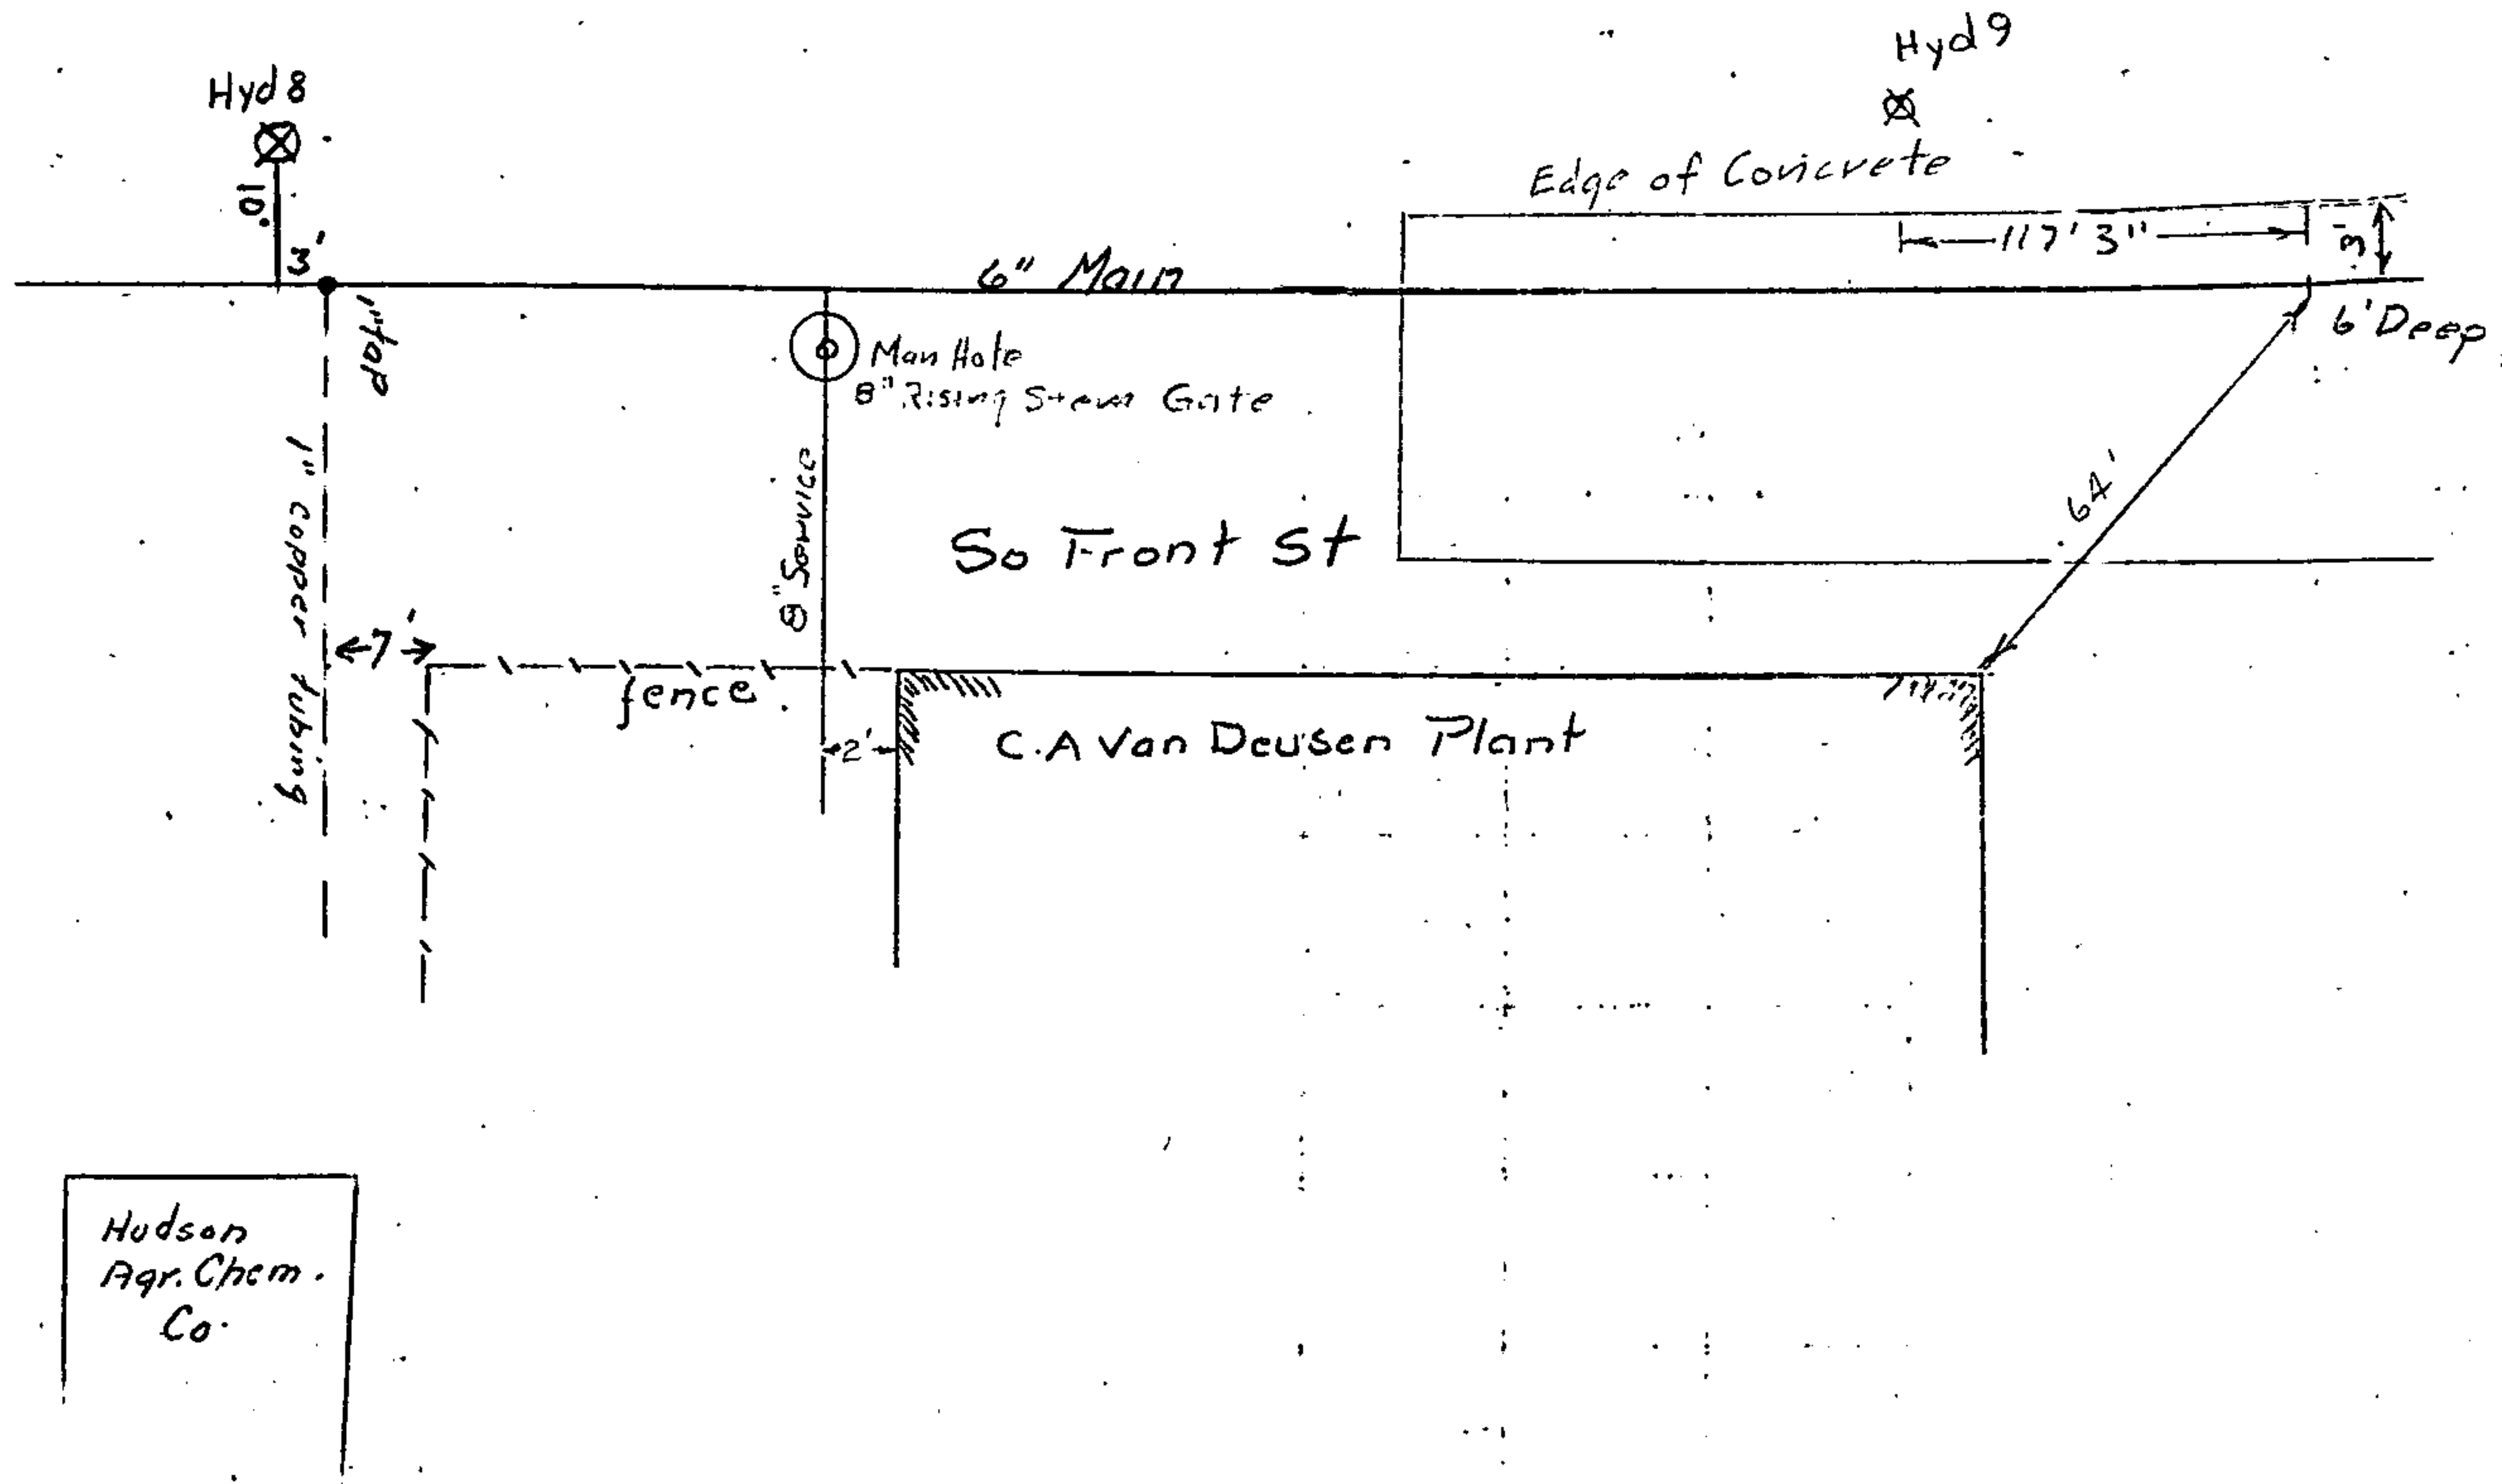 Hyd 8
Hyd 9
Edge of Concrete
10'
3'
117' 3"
6" Main
6' Deep
Man Hole
8" Rising Stem Gate
1" copper tubing
8" Service
64'
So Front St
7'
fence
2'
C.A Van Deusen Plant
Hudson
Agr. Chem.
Co.